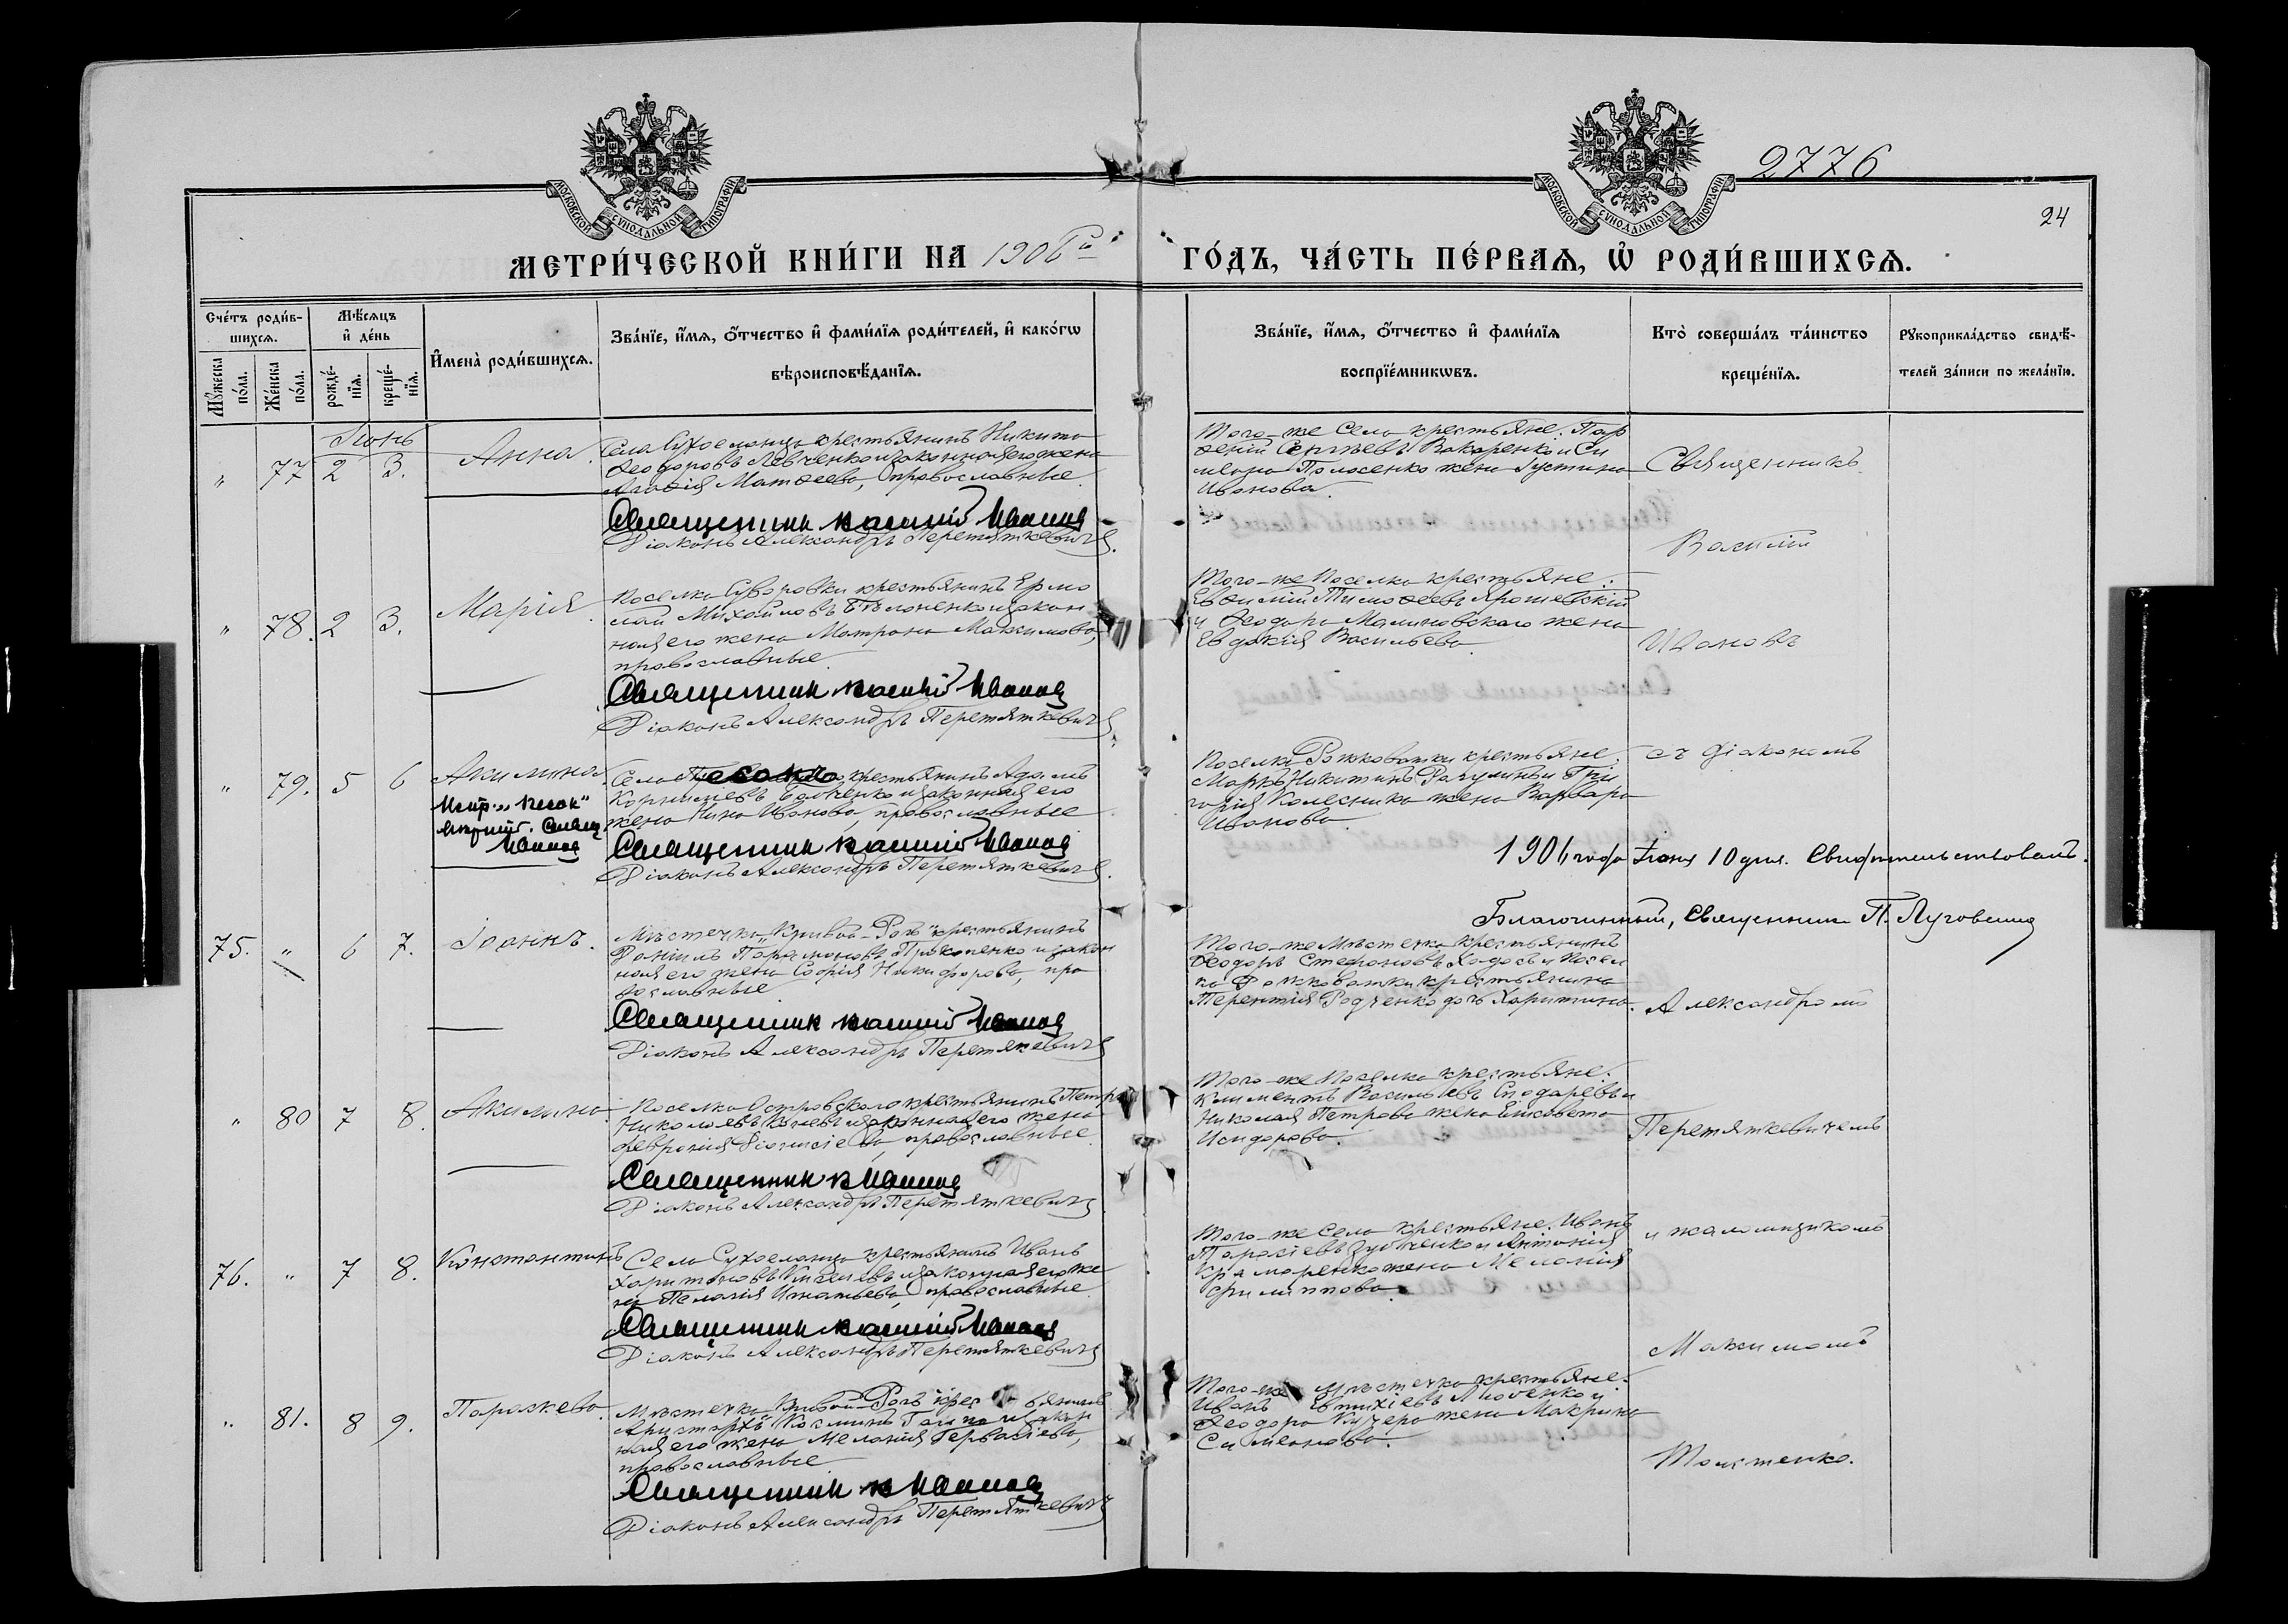 2776
24
МОСКОВСКОЙ СѴНОДАЛЬНОЙ ТИПОГРАФІИ.
МОСКОВСКОЙ СѴНОДАЛЬНОЙ ТИПОГРАФІИ.
МЕТРИ́ЧЕСКОЙ КНИ́ГИ НА 1906 ГО́ДЪ, ЧА́СТЬ ПЕ́РВАѦ, Ѽ РОДИ́ВШИХСѦ.
Сче́тъ роди́в-
шихсѧ.
Мꙋжеска по́ла.
Же́нска по́ла.
Мѣ́сѧцъ
и҆ де́нь
рожде́-нїѧ.
креще́-нїѧ.
И҆мена̀ роди́вшихсѧ.
Зва́нїе, и҆́мѧ, ѻ҆́тчество и҆ фами́лїѧ роди́телей, и҆ како́гѡ
вѣроисповѣ́данїѧ.
Зва́нїе, и҆́мѧ, ѻ҆́тчество и҆ фами́лїѧ
воспрїе́мникѡвъ.
Кто̀ соверша́лъ та́инство
креще́нїѧ.
Рꙋкоприкла́дство свидѣ́-
телей за́писи по жела́нїю.
Іюнь
" 77 2 3.
Анна.
Села Сухоеланца крестьянинъ Никита
Ѳеодоровъ Левченко и законная его жена
Агаѳія Матѳеева, православные.
Священник Василий Иванов
Діаконъ Александръ Перетяткевичъ.
Того-же Села крестьяне: Пар
ѳеній Сергѣевъ Вакаренко и Си
меона Полосенко жена Іустина
Иванова.
Священникъ
Василій
" 78. 2 3.
Марія.
Поселка Суворовки крестьянинъ Ермо
лай Михайловъ Бѣлоненко и закон
ная его жена Матрона Максимова,
православные.
Священник Василий Иванов
Діаконъ Александръ Перетяткевичъ.
Того-же Поселка крестьяне:
Евѳимій Тимоѳеевъ Ярошевскій
и Ѳеодора Малиновскаго жена
Евдокія Васильева.
Ивановъ
" 79. 5 6
Акилина
Испр. "Песок"
Священ.
Иванов
Села Песокъ крестьянинъ Адамъ
Корниліевъ и законная его
жена Нина Иванова, православные
Священник Василий Иванов
Діаконъ Александръ Перетяткевичъ.
Поселка Рожковатки крестьяне:
Маркъ Никитинъ и Гри
горія Колесника жена Варвара
Иванова.
съ діакономъ
1906 года Іюня 10 дня. Свидѣтельствовалъ.
Благочинный, Священник П. Луговенко
75. " 6 7.
Іоаннъ.
Мѣстечка "Кривой-Рогъ" крестьянинъ
Даніилъ Парамоновъ Прокопенко и закон
ная его жена Софія Никифорова, пра
вославные
Священник Василий Иванов
Діаконъ Александръ Перетяткевичъ
Того-же Мѣстечка крестьянинъ
Ѳеодоръ Стефановъ и Посел
ка Рожковатки крестьянина
Терентія Родченко дочь Харитина.
Александромъ
" 80 7 8.
Акилина
Поселка Островскаго крестьянинъ Петръ
Николаевъ и законная его жена
Февронія Діонисіева, православные.
Священник В Иванов
Діаконъ Александръ Перетяткевичъ
Того-же Поселка крестьяне:
Климентъ Васильевъ и
Николая Петрова жена Елисавета
Исидорова.
Перетяткевичемъ
76. " 7 8.
Константинъ
Села Сухоеланца крестьянинъ Иванъ
Харитоновъ и законная его же
на Пелагія Игнатьева, православные
Священник Василий Иванов
Діаконъ Александръ Перетяткевичъ
Того-же Села крестьяне: Иванъ
Тарасіевъ Зубченко и Антонія
Крамаренко жена Меланія
Филиппова.
и псаломщикомъ
Максимомъ
" 81. 8 9.
Параскева.
Мѣстечка Кривой-Рогъ крестьянинъ
Аристархъ Космынъ и закон
ная его жена Меланія Гервасіева,
православные
Священник В Иванов
Діаконъ Александръ Перетяткевичъ
Того-же Мѣстечка крестьяне:
Иванъ Евтихіевъ и
Ѳеодора Кучера жена Макрина
Симеонова.
Толстенко.